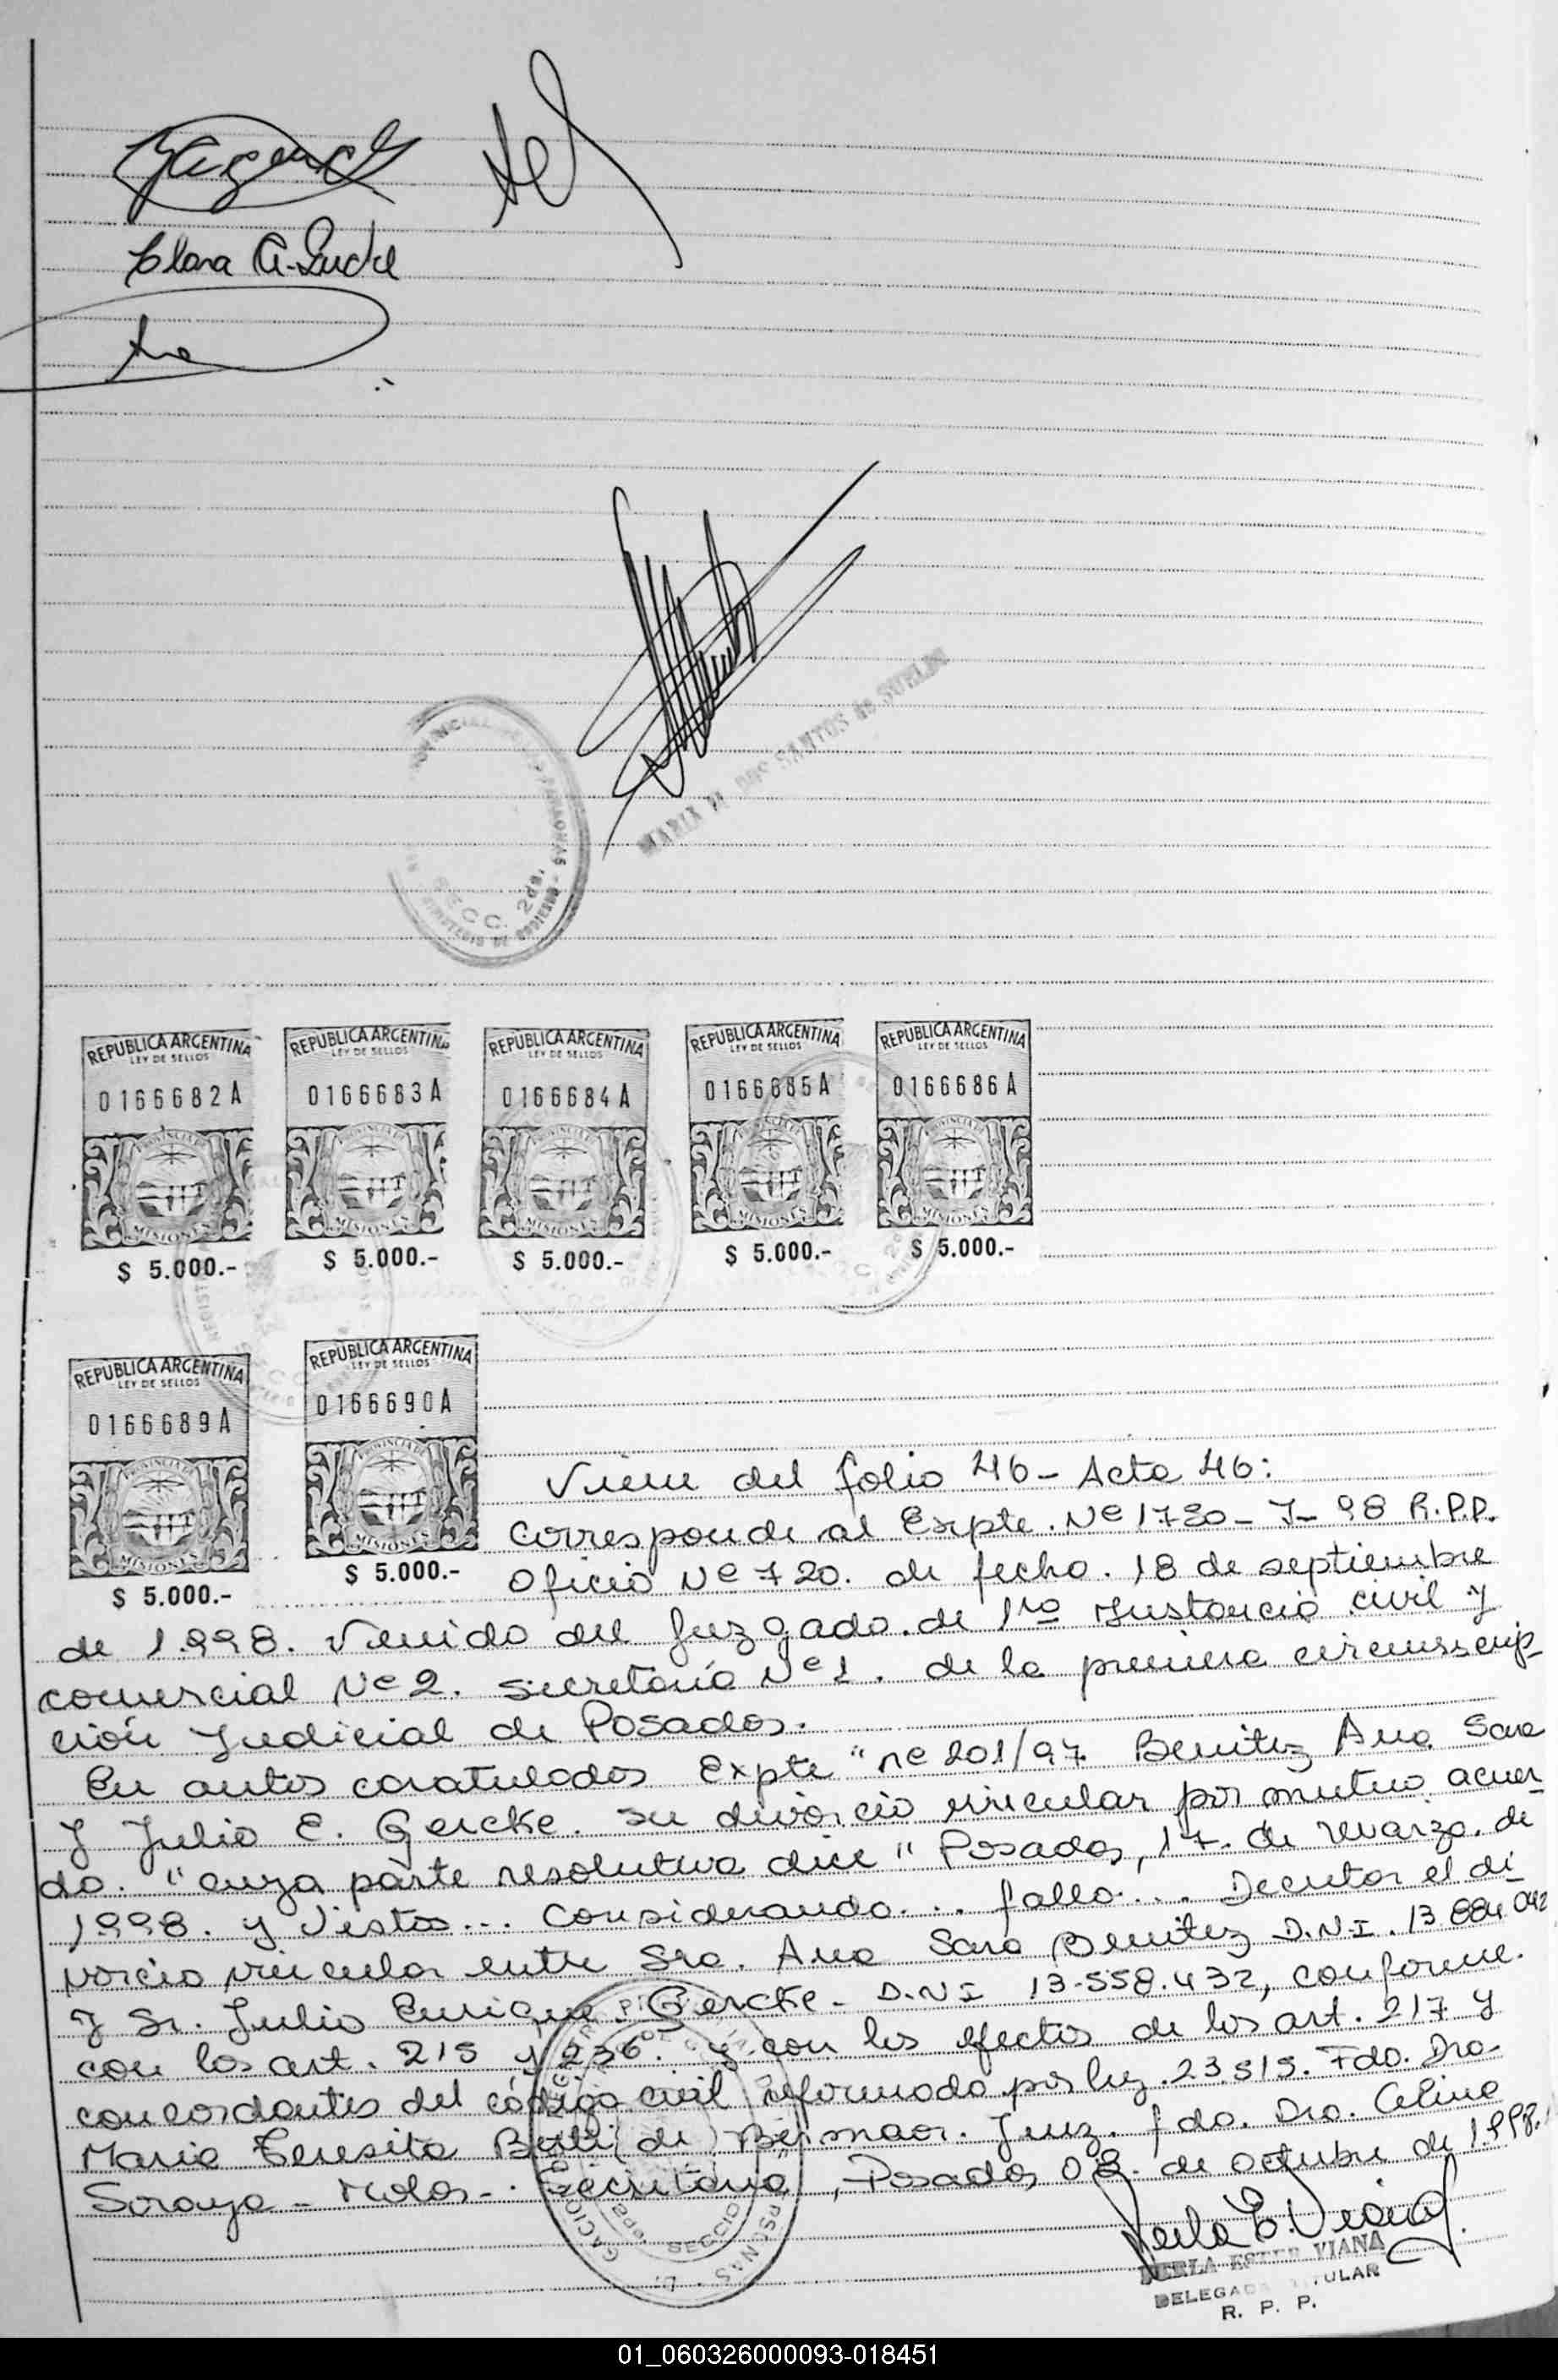 Clara A.
MARIA
DOS SANTOS de
SECC. 2da.
REPUBLICA ARGENTINA
LEY DE SELLOS
0166682A
PROVINCIA DE
MISIONES
$ 5.000.-
REPUBLICA ARGENTINA
LEY DE SELLOS
0166683A
MISIONES
$ 5.000.-
REPUBLICA ARGENTINA
LEY DE SELLOS
0166684A
MISIONES
$ 5.000.-
REPUBLICA ARGENTINA
LEY DE SELLOS
0166685A
MISIONES
$ 5.000.-
REPUBLICA ARGENTINA
LEY DE SELLOS
0166686A
MISIONES
$ 5.000.-
REPUBLICA ARGENTINA
LEY DE SELLOS
0166689A
PROVINCIA DE
MISIONES
$ 5.000.-
REPUBLICA ARGENTINA
LEY DE SELLOS
0166690A
PROVINCIA DE
MISIONES
$ 5.000.-
Viene del folio 46 - Acta 46:
corresponde al Expte. Nº 1730 - J - 98 R.P.P.
Oficio Nº 720. de fecha. 18 de septiembre
de 1.998. Venido del Juzgado. de 1ra Instancia civil y
comercial Nº 2. secretaría Nº 1. de la primera circunscrip-
ción Judicial de Posadas.
En autos caratulados Expte "nº 201/97 Benitez Ana Sara
y Julio E. Gercke. su divorcio vincular por mutuo acuer
do. "cuya parte resolutiva dice " Posadas, 17. de marzo. de
1.998. y Vistos... Considerando... fallo... Decretar el di
vorcio vincular entre Sra. Ana Sara Benitez D.N.I. 13.884.042
y Sr. Julio Enrique Gercke - D.N.I 13.558.432, conforme.
con los art. 215 y 236. y con los efectos de los art. 217 y
concordantes del código civil reformado por ley. 23.515. Fdo. Dra.
Maria Teresita de Juez. fdo. Dra. Celina
Soraya - - Secretaria, Posadas 08. de octubre de 1.998.
Perla E. Viana
PERLA ESTER VIANA
DELEGADA TITULAR
R. P. P.
01_060326000093-018451